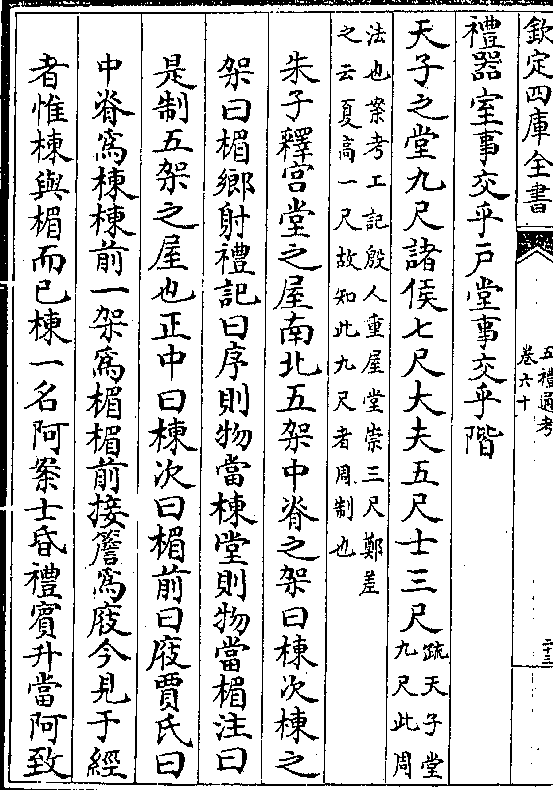 欽定四庫全書
五禮通考
卷六十
二十三
禮器室事交乎戶堂事交乎階
天子之堂九尺諸侯七尺大夫五尺士三尺疏天子堂
九尺此周
法也案考工記殷人重屋堂崇三尺鄭差
之云夏高一尺故知此九尺者周制也
朱子釋宫堂之屋南北五架中脊之架曰棟次棟之
架曰楣鄉射禮記曰序則物當棟堂則物當楣注曰
是制五架之屋也正中曰棟次曰楣前曰庪賈氏曰
中脊為棟棟前一架為楣楣前接簷為庪今見于經
者惟棟與楣而已棟一名阿案士昏禮賓升當阿致